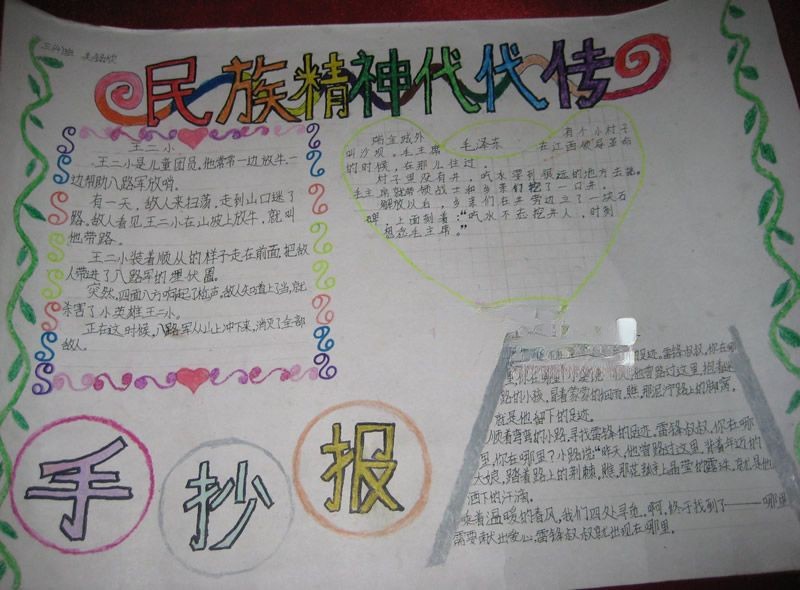 民族精神代代传
王二小
王二小是儿童团员,他常常一边放牛,一
边帮助八路军放哨。
有一天,敌人来扫荡,走到山口迷了
路。敌人看见王二小在山坡上放牛,就叫
他带路。
王二小装着顺从的样子走在前面,把敌
人带进了八路军的埋伏圈。
突然,四面八方响起了枪声。敌人知道上了当,就
杀害了小英雄王二小。
正在这时候,八路军从山上冲下来,消灭了全部
敌人。
瑞金城外 毛泽东 有个小村子
叫沙坝。毛主席 在江西领导革命
的时候,在那儿住过。
村子里没有井,吃水要到很远的地方去挑。
毛主席就带领战士和乡亲们挖了一口井。
解放以后,乡亲们在井旁边立了一块石
碑,上面刻着:“吃水不忘挖井人,时刻
想念毛主席。”
的足迹。雷锋叔叔,你在哪
里,你在哪里?小溪说 他曾路过这里,抱着迷
路的小孩,冒着蒙蒙的细雨。瞧,那泥泞路上的脚窝,
就是他留下的足迹。
顺着弯弯的小路,寻找雷锋的足迹。雷锋叔叔,你在哪
里,你在哪里?小路说:“昨天,他曾路过这里,背着年迈的
大娘,踏着路上的荆棘。瞧,那花瓣上晶莹的露珠,就是他
洒下的汗滴。
乘着温暖的春风,我们四处寻觅。啊,终于找到了——哪里
需要献出爱心,雷锋叔叔就出现在哪里。
手抄报